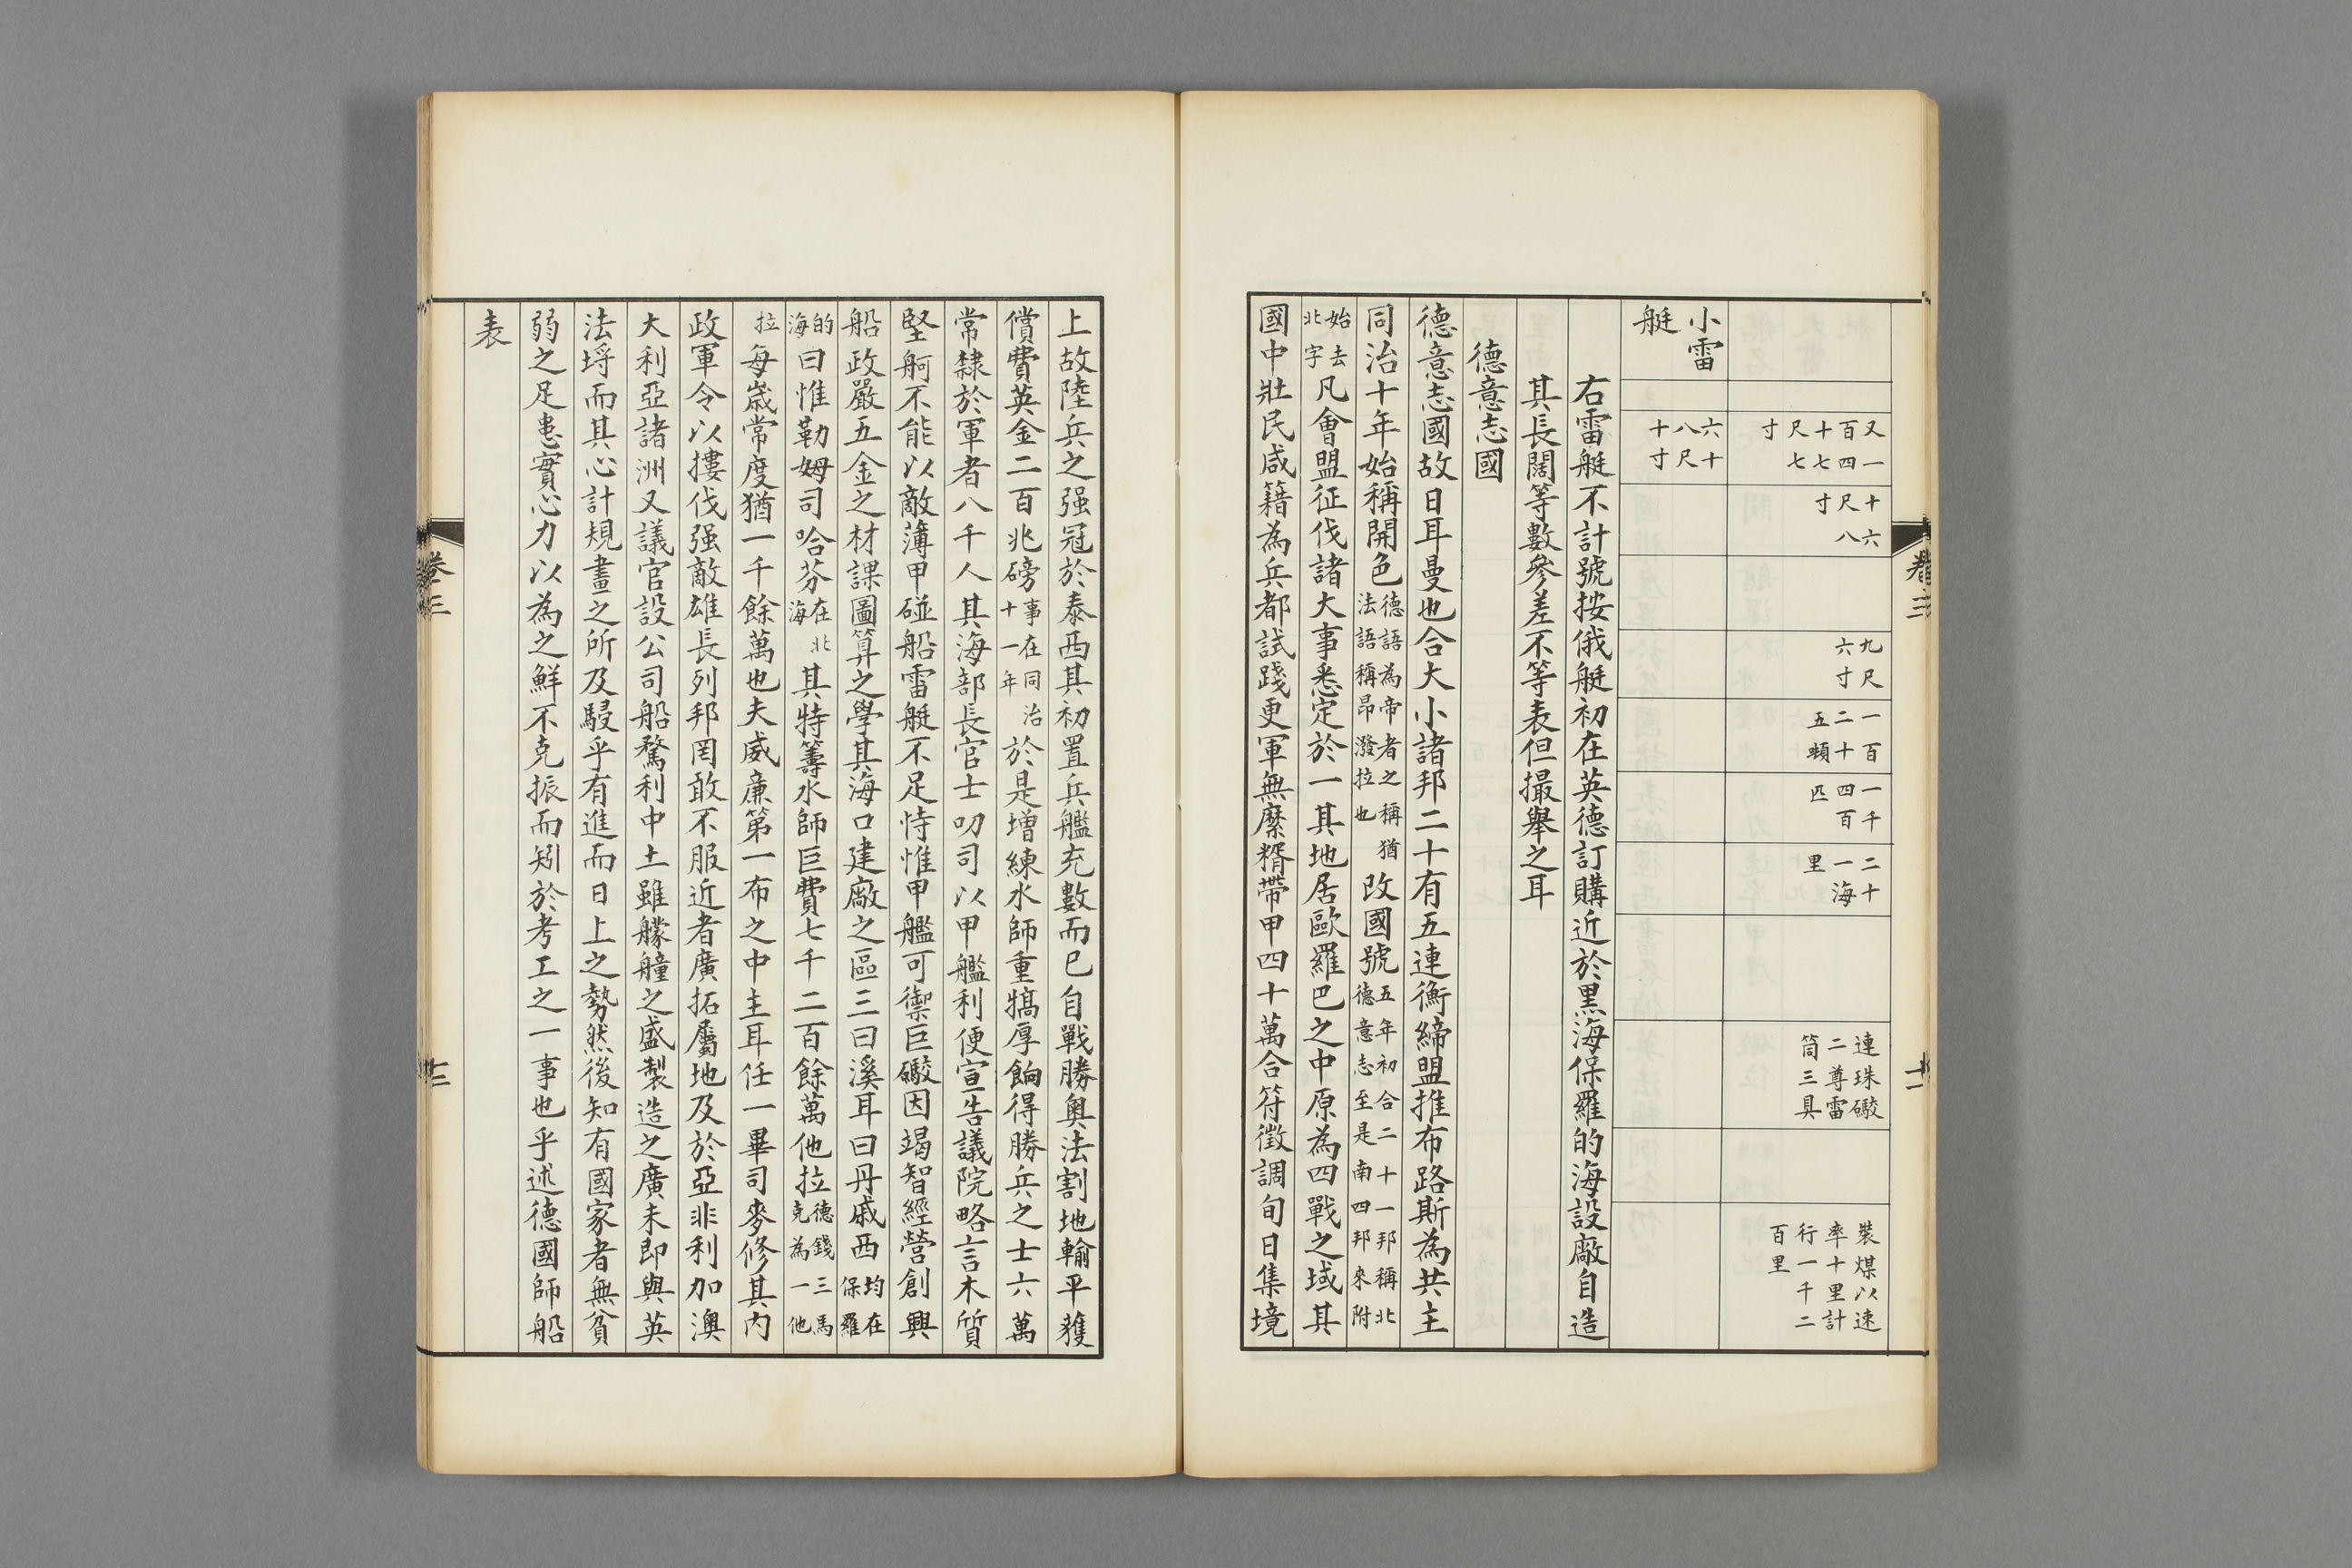 又一
百四
十七
尺七
寸
十六
尺八
寸
九尺
六寸
一百
二十
五噸
一千
四百
匹
二十
一海
里
連珠礮
二尊雷
筒三具
裝煤以速
率十里計
行一千二
百里
小雷
艇
六十
八尺
十寸
右雷艇不計號按俄艇初在英德訂購近於黑海保羅的海設廠自造
其長闊等數參差不等表但撮舉之耳
德意志國
德意志國故日耳曼也合大小諸邦二十有五連衡締盟推布路斯為共主
同治十年始稱開色德語為帝者之稱猶法語稱昂潑拉也改國號五年初合二十一邦稱北德意志至是南四邦來附
始去北字凡會盟征伐諸大事悉定於一其地居歐羅巴之中原為四戰之域其
國中壯民咸籍為兵都試踐更軍無縻糈帶甲四十萬合符徵調旬日集境
卷三
上故陸兵之强冠於泰西其初置兵艦充數而已自戰勝奥法割地輸平獲
償費英金二百兆磅事在同治十一年於是增練水師重犒厚餉得勝兵之士六萬
常隸於軍者八千人其海部長官士叨司以甲艦利便宣告議院略言木質
堅舸不能以敵薄甲碰船雷艇不足恃惟甲艦可禦巨礮因竭智經營創興
船政嚴五金之材課圖算之學其海口建廠之區三曰溪耳曰丹戚西均在保羅
的海曰惟勒姆司哈芬在北海其特籌水師巨費七千二百餘萬他拉德錢三馬克為一他
拉每歲常度猶一千餘萬也夫威廉第一布之中主耳任一畢司麥修其內
政軍令以摟伐强敵雄長列邦罔敢不服近者廣拓屬地及於亞非利加澳
大利亞諸洲又議官設公司船騖利中土雖艨艟之盛製造之廣未即與英
法埒而其心計規畫之所及駸乎有進而日上之勢然後知有國家者無貧
弱之足患實心力以為之鮮不克振而矧於考工之一事也乎述德國師船
表
卷三